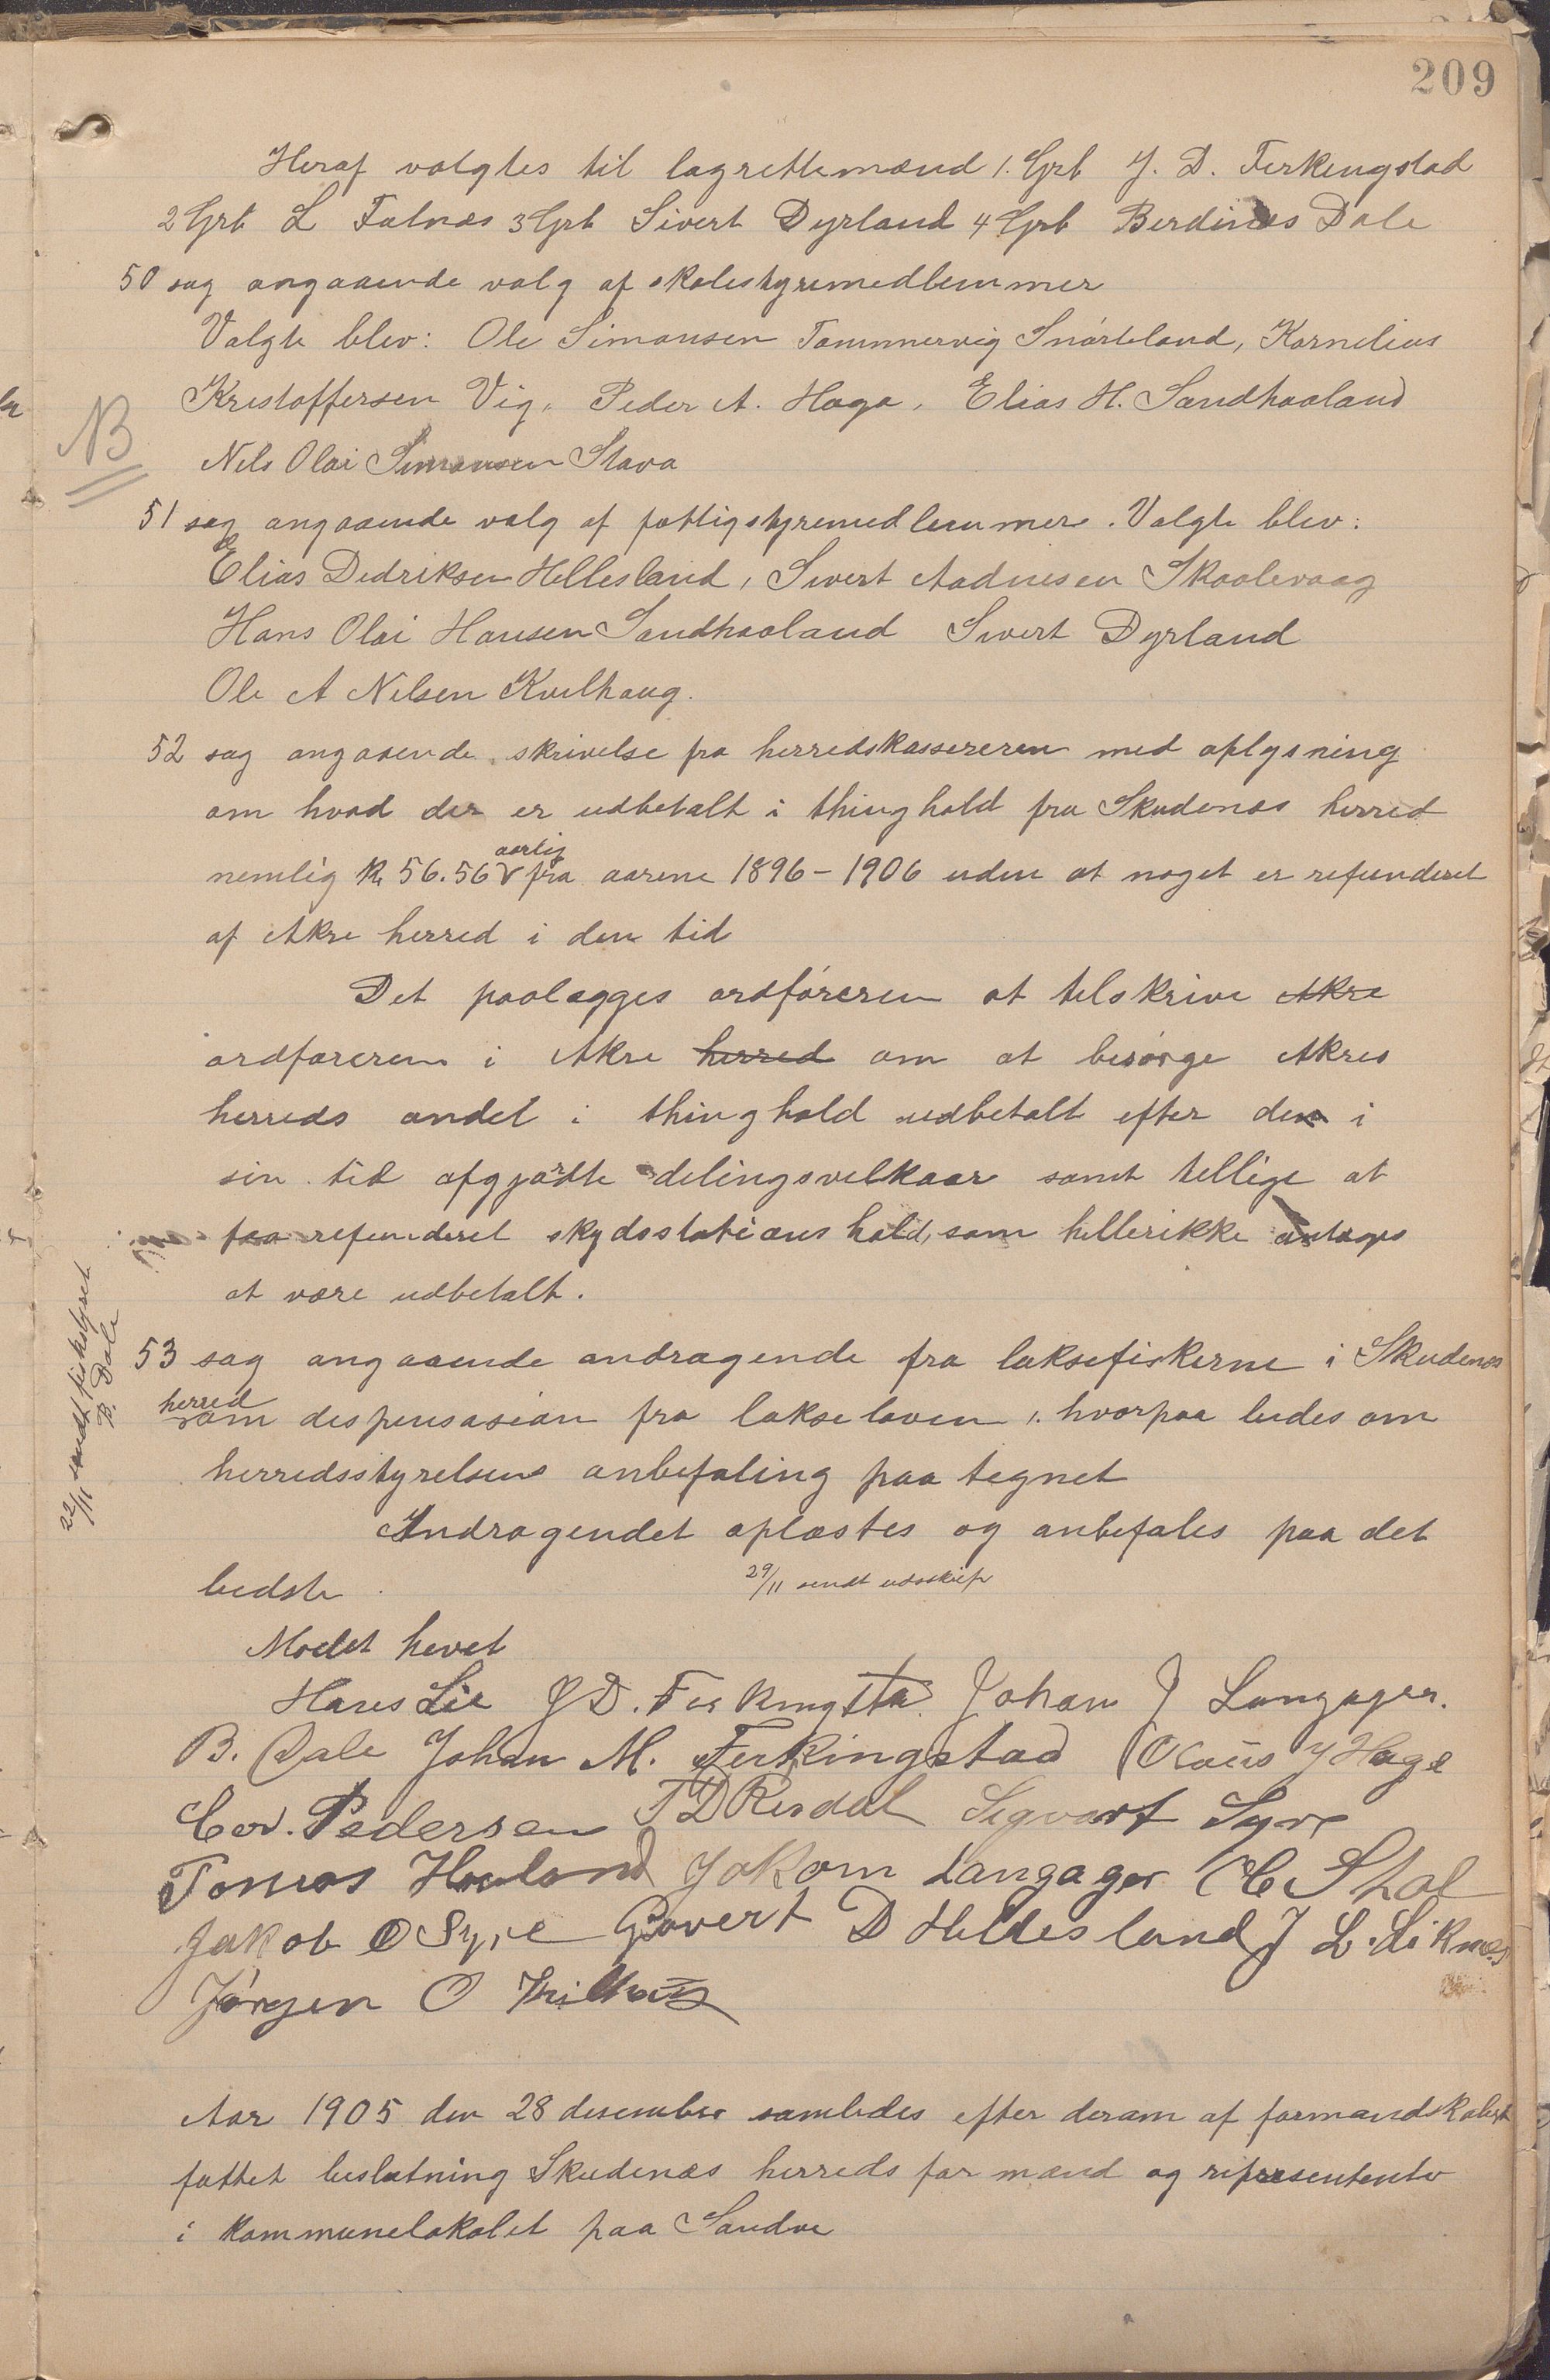 209
Heraf valgtes til lagrettemænd 1. Grb J. D. Ferkingstad
2 Grb L Falnæs 3 Grb Sivert Dyrland 4 Grb Berdines Dale
50 sag angaaende valg af skolestyremedlemmer
Valgte blev: Ole Simonsen Tammervig Snørteland, Kornelius
Kristoffersen Vig, Peder A. Haga, Elias H. Sandhaaland
NB
Nils Olai Simonsen Stava
51 sag angaaende valg af fattigstyremedlemmer. Valgte blev:
Elias Dedriksen Hellesland, Sivert Aadnesen Skaalevaag
Hans Olai Hansen Sandhaaland Sivert Dyrland
Ole A Nilsen Kvilhaug.
52 sag angaaende skrivelse fra herredskassereren med oplysning
om hvad der er udbetalt i thinghold fra Skudenæs herred
nemlig kr 56.56 aarlig fra aarene 1896-1906 uden at noget er refunderet
af Akre herred i den tid
Det paalægges ordføreren at tilskrive Akre
ordføreren i Akre herred om at besørge Akres
herreds andel i thinghold udbetalt efter den i
sin tid afgjordte delingsvilkaar samt tillige at
faa refunderet skydsstationshold, som hellerikke antages
at være udbetalt.
53 sag angaaende andragende fra laksefiskerne i Skudenes
herred om dispensasion fra lakseloven, hvorpaa bedes om
herredsstyrelsens anbefaling paa tegnet
22/11 sendt fiskstyret
B. Dale
Andragendet oplæstes og anbefales paa det
bedste 29/11 sendt udskrift
Mødet hevet
Hans Lie J D. Ferkingstad. Johan J Langager.
B. Dale Johan M. Ferkingstad Olaus J Hage
Cor. Pedersen T D Risdal Sigvart Syre
Tomas Haaland Jakom Langager C Stol
Jakob O Syre Govert D Hellesland J L. Liknes
Jørgen O
Aar 1905 den 28 desember samledes efter derom af formandskabet
fattet beslutning Skudenæs herreds formænd og represententer
i kommunelokalet paa Sandve